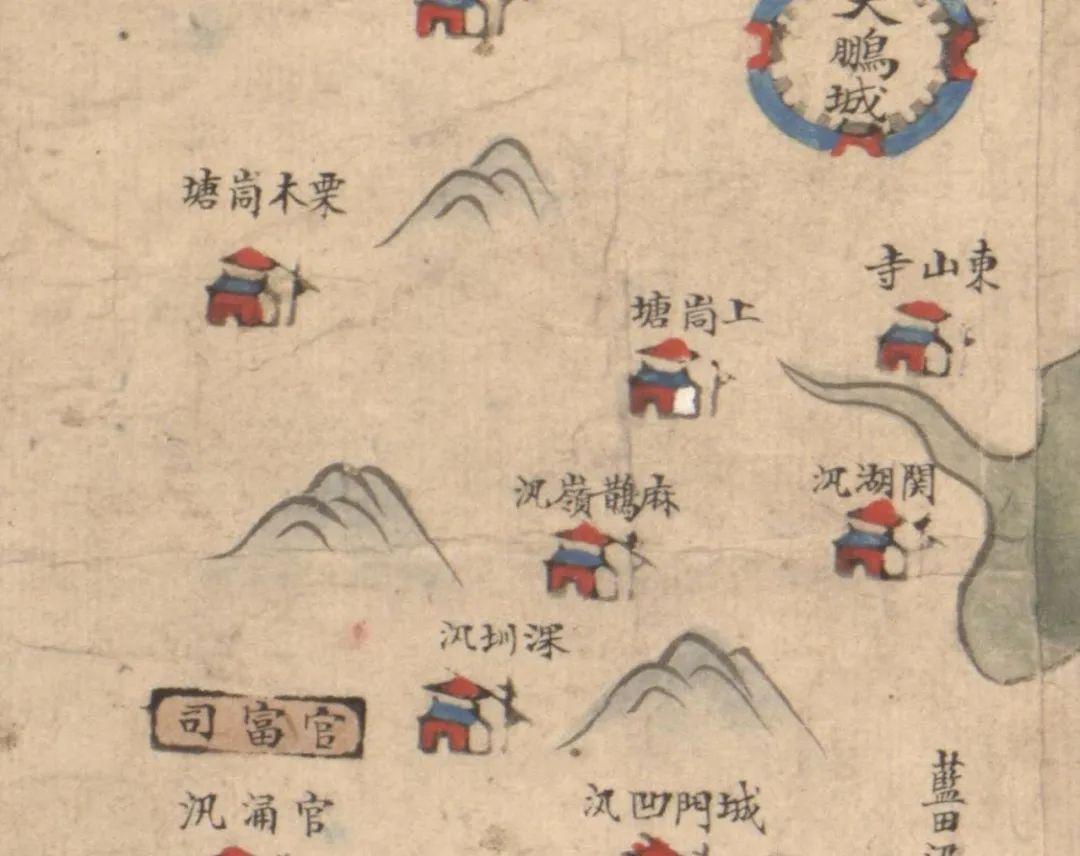 大鵬城
栗木崗塘
東山寺
上崗塘
麻鵲嶺汛
関湖汛
深圳汛
官富司
官涌汛
城門凹汛
藍田汛